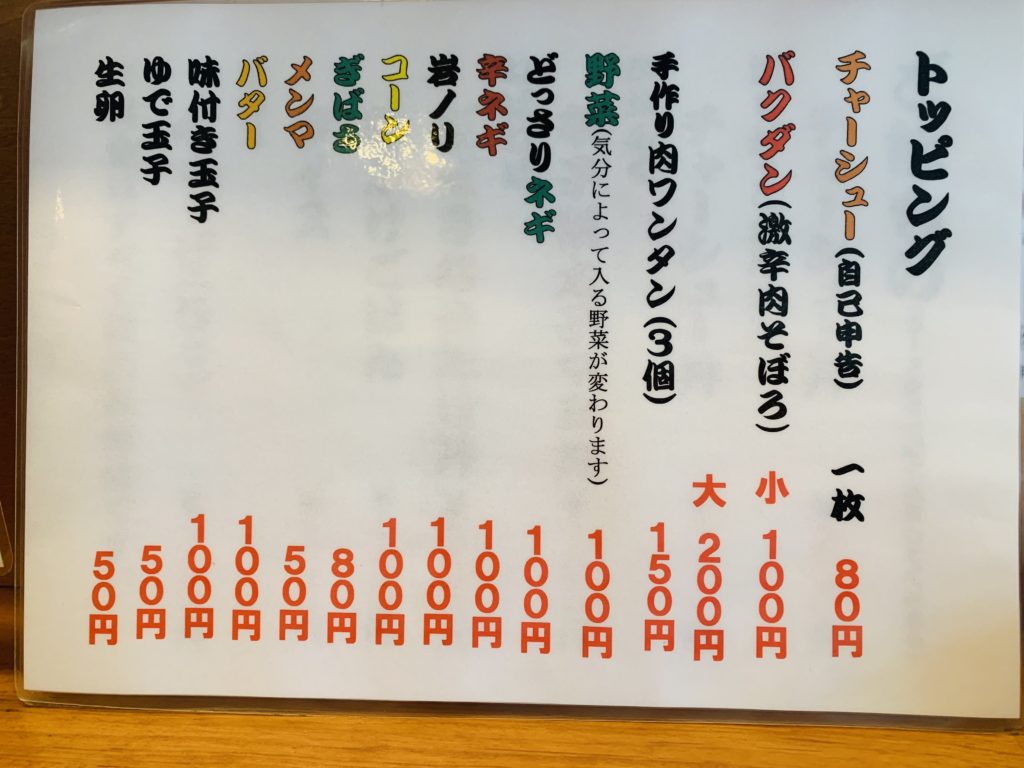 トッピング
チャーシュー(自己申告) 一枚 80円
バクダン(激辛肉そぼろ) 小 100円
大 200円
手作り肉ワンタン(3個) 150円
野菜(気分によって入る野菜が変わります) 100円
どっさりネギ 100円
辛ネギ 100円
岩ノリ 100円
コーン 100円
ぎばさ 80円
メンマ 50円
バター 100円
味付き玉子 100円
ゆで玉子 50円
生卵 50円